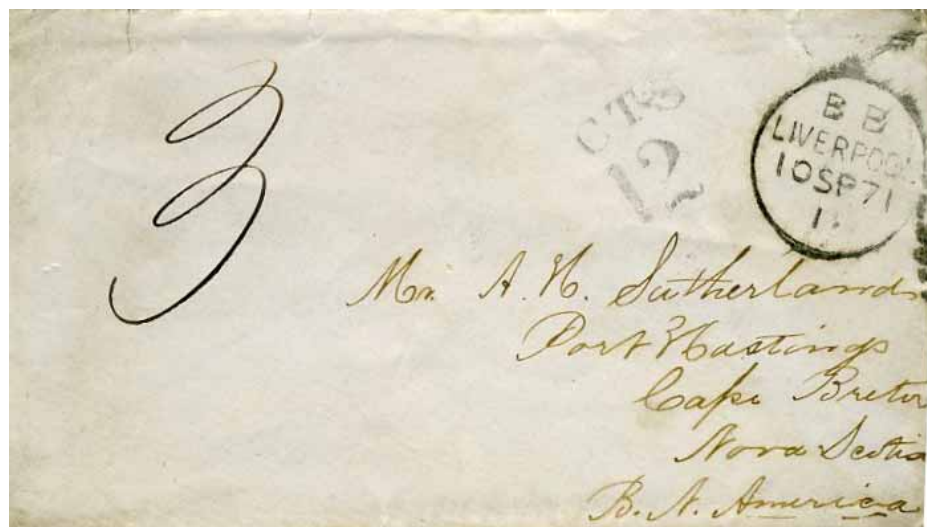 3
CTS
12
B B
LIVERPOOL
10 SP 71
Mr. A. H. Sutherland
Port Hastings
Cape Breton
Nova Scotia
B. N. America